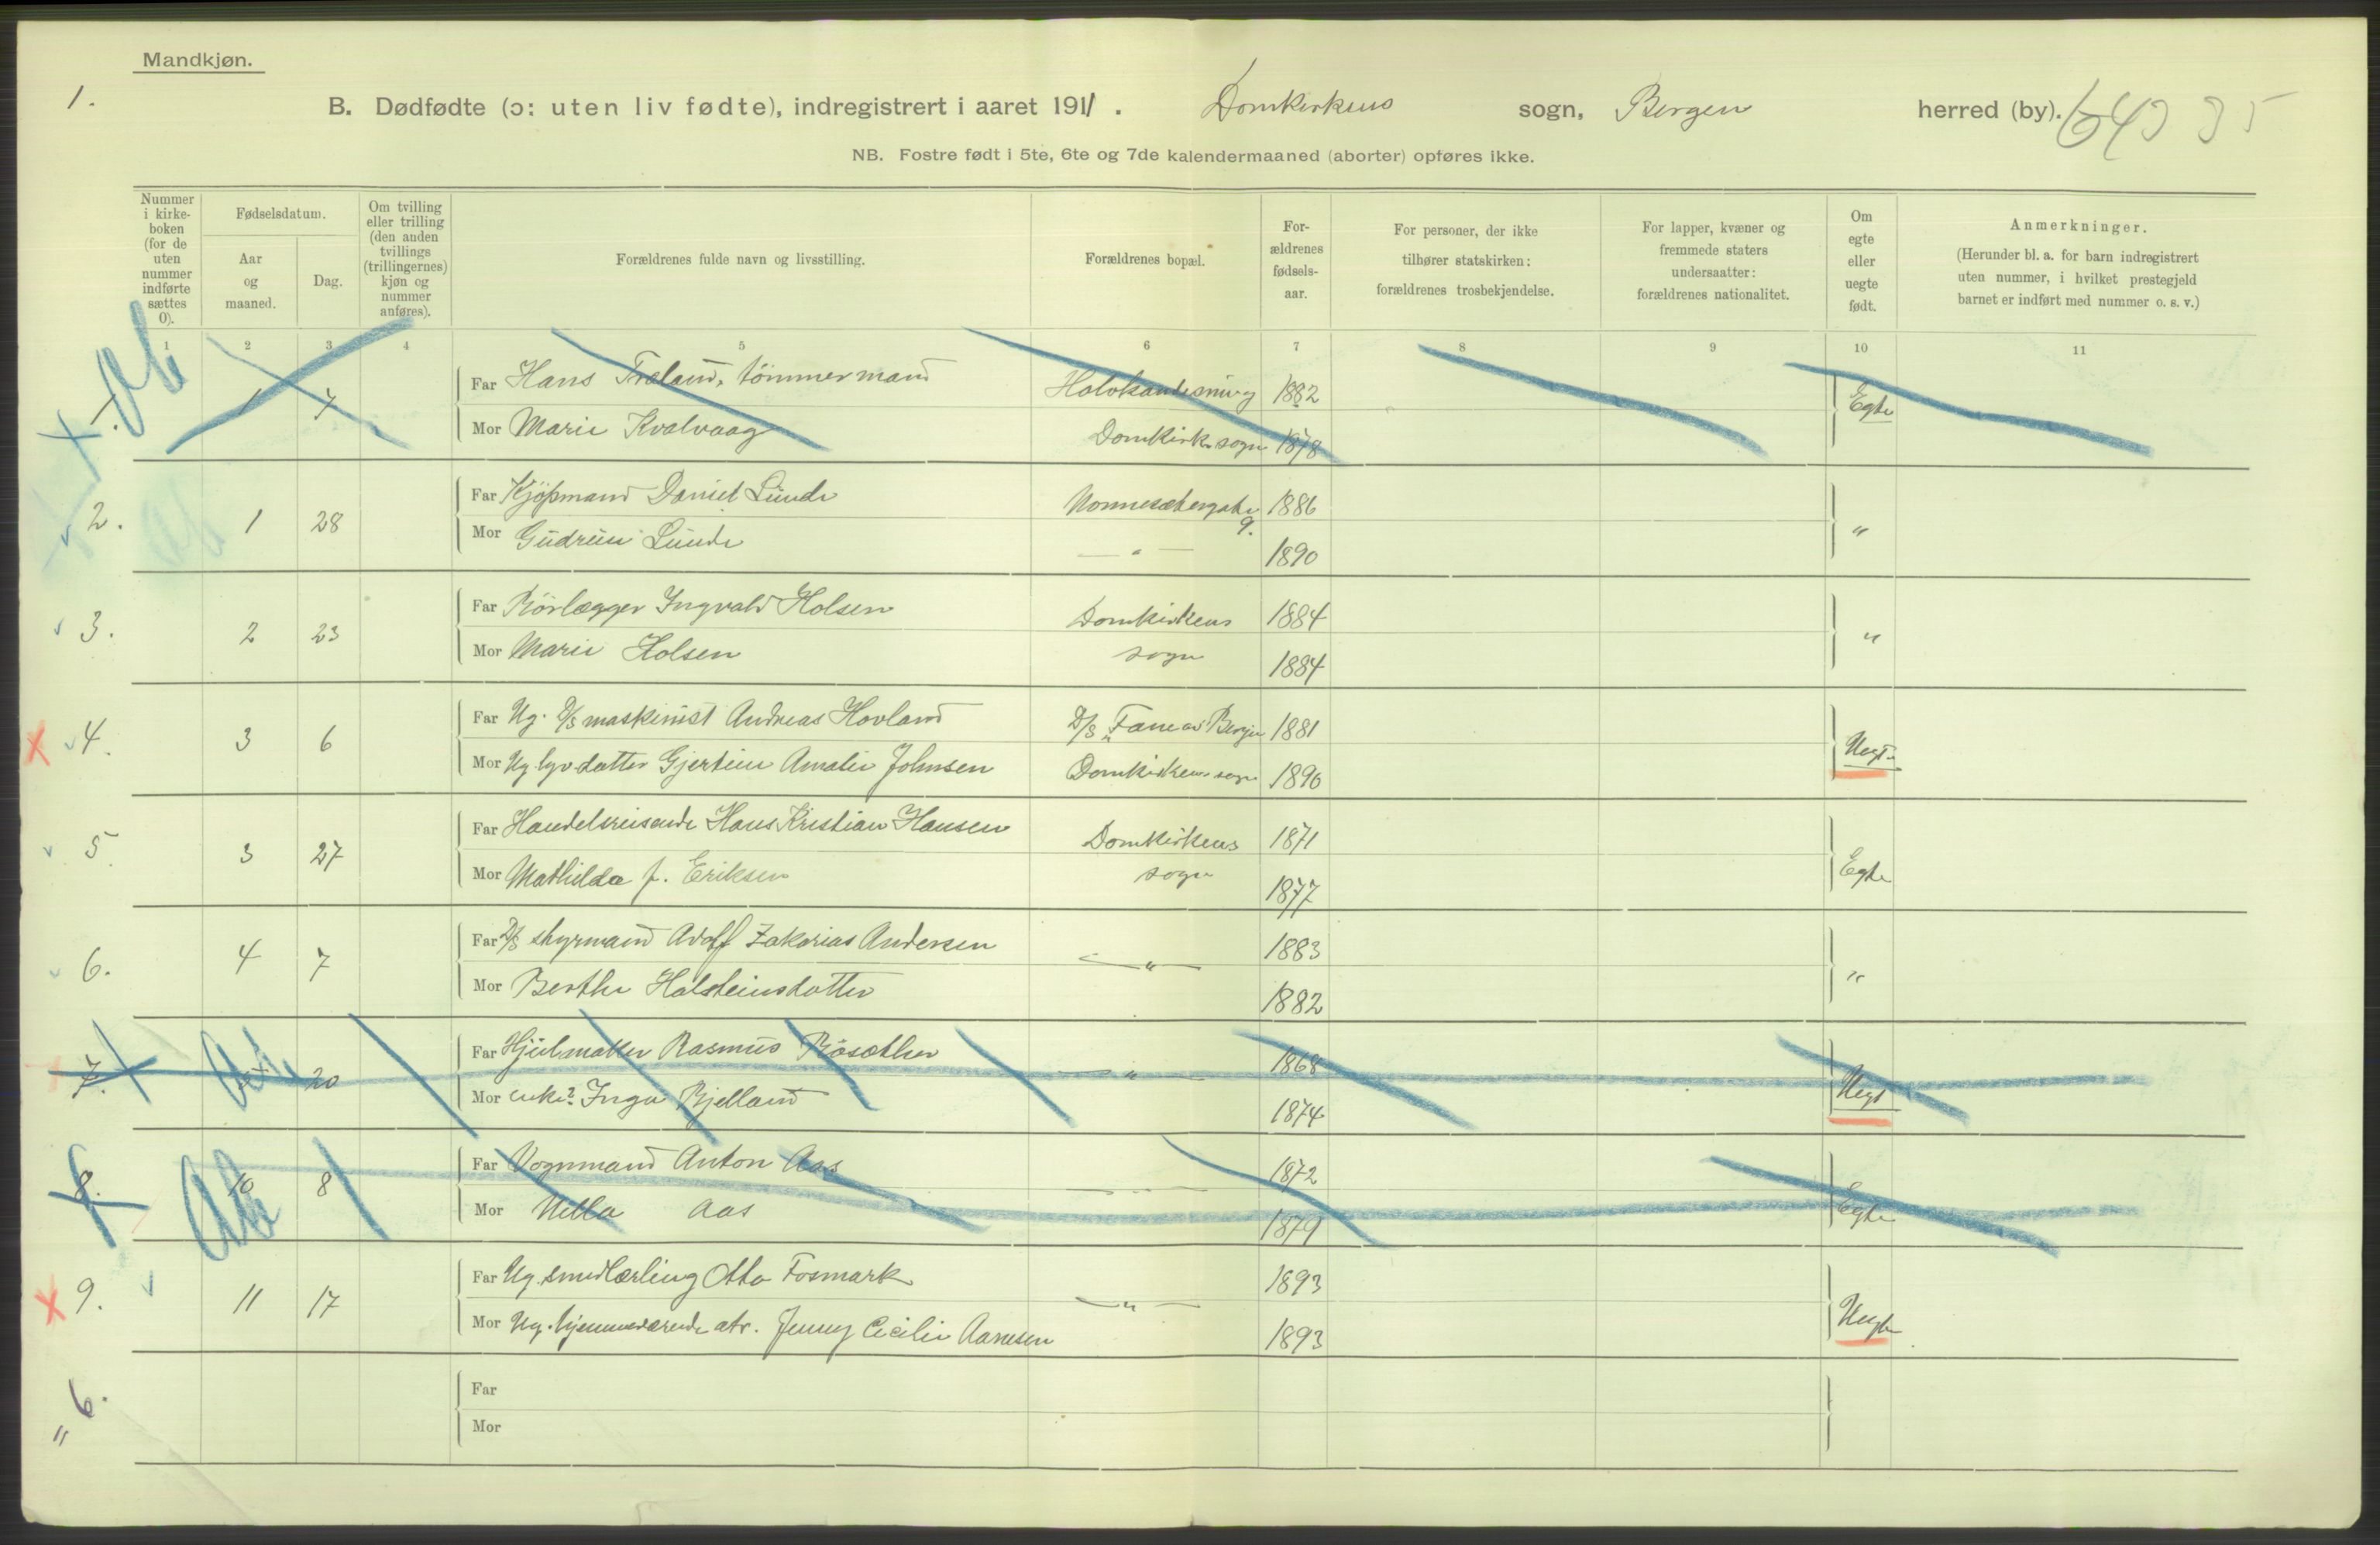 Mandkjøn.
1.
B. Dødfødte (ɔ: uten liv fødte), indregistrert i aaret 1911. Domkirkens sogn, Bergen herred (by).
NB. Fostre født i 5te, 6te og 7de kalendermaaned (aborter) opføres ikke.
Nummer i kirke- boken (for de uten nummer indførte sættes 0).
Fødselsdatum.
Aar og maaned.
Dag.
Om tvilling eller trilling (den anden tvillings (trillingernes) kjøn og nummer anføres).
Forældrenes fulde navn og livsstilling.
Forældrenes bopæl.
For- ældrenes fødsels- aar.
For personer, der ikke tilhører statskirken: forældrenes trosbekjendelse.
For lapper, kvæner og fremmede staters undersaatter: forældrenes nationalitet.
Om egte eller uegte født.
Anmerkninger.
(Herunder bl. a. for barn indregistrert uten nummer, i hvilket prestegjeld barnet er indført med nummer o. s. v.)
1 2 3 4 5 6 7 8 9 10 11
Ab
1. 1 7 Far Hans Træland, tömmermand 1882 Egte
Mor Marie Kvalvaag Domkirk. sogn 1878
2. 1 28 Far Kjöpmand Daniel Lunde Nonnesætergate 9. 1886 "
Mor Gudrun Lunde — " — 1890
3. 2 23 Far Rörlægger Ingvald Holsen Domkirkens 1884 "
Mor Marie Holsen sogn 1884
4. 3 6 Far Ug. D/S maskinist Andreas Hovland D/S 1881 Uegte
Mor Ug. Gjertine Amalie Johnsen Domkirkens sogn 1890
5. 3 27 Far Handelsreisende Hans Kristian Hansen Domkirkens 1871 Egte
Mor Mathilda f. Eriksen sogn 1877
6. 4 7 Far D/S styrmand Adolf Zakarias Andersen — " — 1883 "
Mor Berthe Halsteinsdatter 1882
7. Ab 20 Far Hjulmaker Rasmus Rösæther — " — 1868 Uegt
Mor enke? Inga Bjelland 1874
8. Ab 10 8 Far Vognmand Anton Aas — " — 1872 Egte
Mor Aas 1879
9. 11 17 Far Ug. smedlærling Otto Fosmark — " — 1893 Uegte
Mor Ug. hjemmeværende atr. Jenny Cecilie Aarnesen 1893
6. Far
" Mor